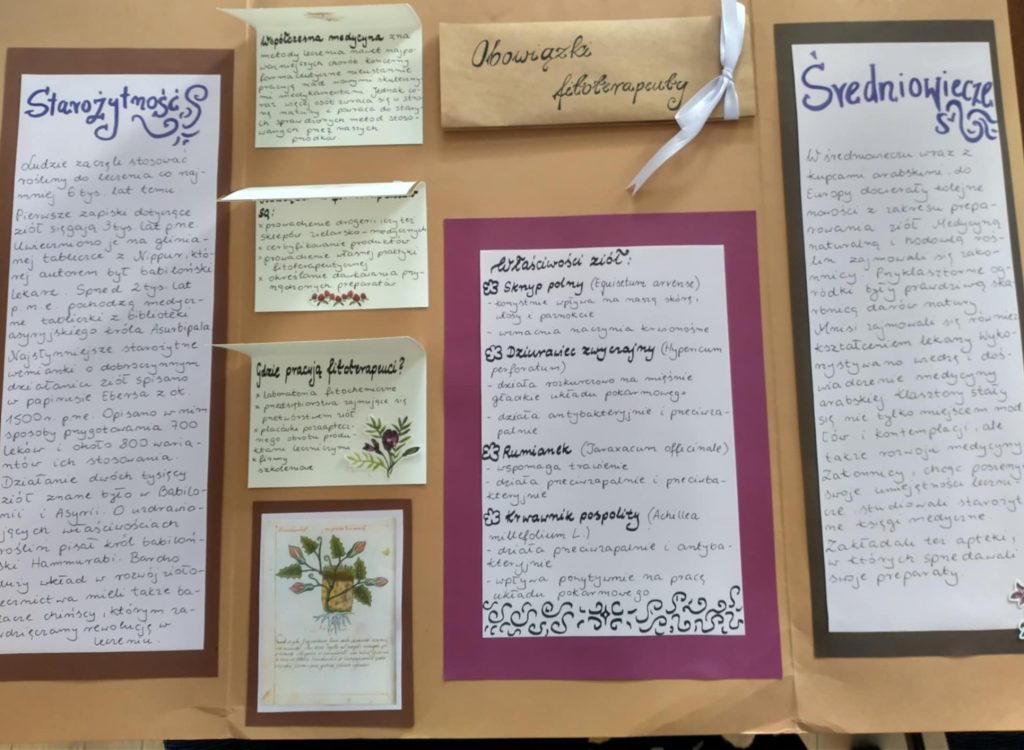 Starożytność
Ludzie zaczęli stosować
rośliny do leczenia co naj-
mniej 6 tys. lat temu
Pierwsze zapiski dotyczące
ziół sięgają 3 tys. lat p.n.e.
Uwieczniono je na glinia-
nej tabliczce z Nippur, któ-
rej autorem był babiloński
lekarz. Sprzed 2 tys. lat
p.n.e. pochodzą medycz-
ne tabliczki z biblioteki
asyryjskiego króla Asurbipala.
Najsłynniejsze starożytne
wzmianki o dobroczynnym
działaniu ziół spisano
w papirusie Ebersa z ok.
1500 r. p.n.e. Opisano w nim
sposoby przygotowania 700
leków i około 800 waria-
ntów ich stosowania.
Działanie dwóch tysięcy
ziół znane było w Babilo-
nii i Asyrii. O uzdrawia-
jących właściwościach
roślin pisał król babiloń-
ski Hammurabi. Bardzo
duży wkład w rozwój zioło-
lecznictwa mieli także ba-
dacze chińscy, którym za-
wdzięczamy rewolucję w
leczeniu.
Współczesna medycyna zna
metody leczenia nawet najpo-
ważniejszych chorób koncerny
farmaceutyczne nieustannie
pracują nad nowymi skuteczny-
mi medykamentami. Jednak co-
raz więcej osób zwraca się w stro-
nę natury i powraca do stary-
ch sprawdzonych metod stoso-
wanych przez naszych
przodków.
są:
× prowadzenie drogerii czy też
sklepów zielarsko-medycznych
× certyfikowanie produktów
× prowadzenie własnej praktyki
fitoterapeutycznej
× określanie dawkowania przy-
rządzonych preparatów
Gdzie pracują fitoterapeuci?
× laboratoria fitochemiczne
× przedsiębiorstwa zajmujące się
przetwórstwem ziół
× placówki pozaaptecz-
nego obrotu produ-
ktami leczniczymi
× firmy
szkoleniowe
Obowiązki
fitoterapeuty
Właściwości ziół:
Skrzyp polny (Equisetum arvense)
- korzystnie wpływa na naszą skórę,
włosy i paznokcie
- wzmacnia naczynia krwionośne
Dziurawiec zwyczajny (Hypericum
perforatum)
- działa rozkurczowo na mięśnie
gładkie układu pokarmowego
- działa antybakteryjnie i przeciwza-
palnie
Rumianek (Taraxacum officinale)
- wspomaga trawienie
- działa przeciwzapalnie i przeciwba-
kteryjnie
Krwawnik pospolity (Achillea
millefolium L.)
- działa przeciwzapalnie i antyba-
kteryjnie
- wpływa pozytywnie na pracę
układu pokarmowego
Średniowiecze
W średniowieczu wraz z
kupcami arabskimi do
Europy docierały kolejne
nowości z zakresu prepa-
rowania ziół. Medycyną
naturalną i hodowlą roś-
lin zajmowali się zako-
nnicy. Przyklasztorne og-
ródki były prawdziwą ska-
rbnicą darów natury.
Mnisi zajmowali się również
kształceniem lekarzy. Wyko-
rzystywano wiedzę i doś-
wiadczenie medycyny
arabskiej. Klasztory stały
się nie tylko miejscem mod-
łów i kontemplacji, ale
także rozwoju medycyny
Zakonnicy, chcąc poszerzyć
swoje umiejętności leczni-
cze, studiowali starożyt-
ne księgi medyczne
Zakładali też apteki,
w których sprzedawali
swoje preparaty